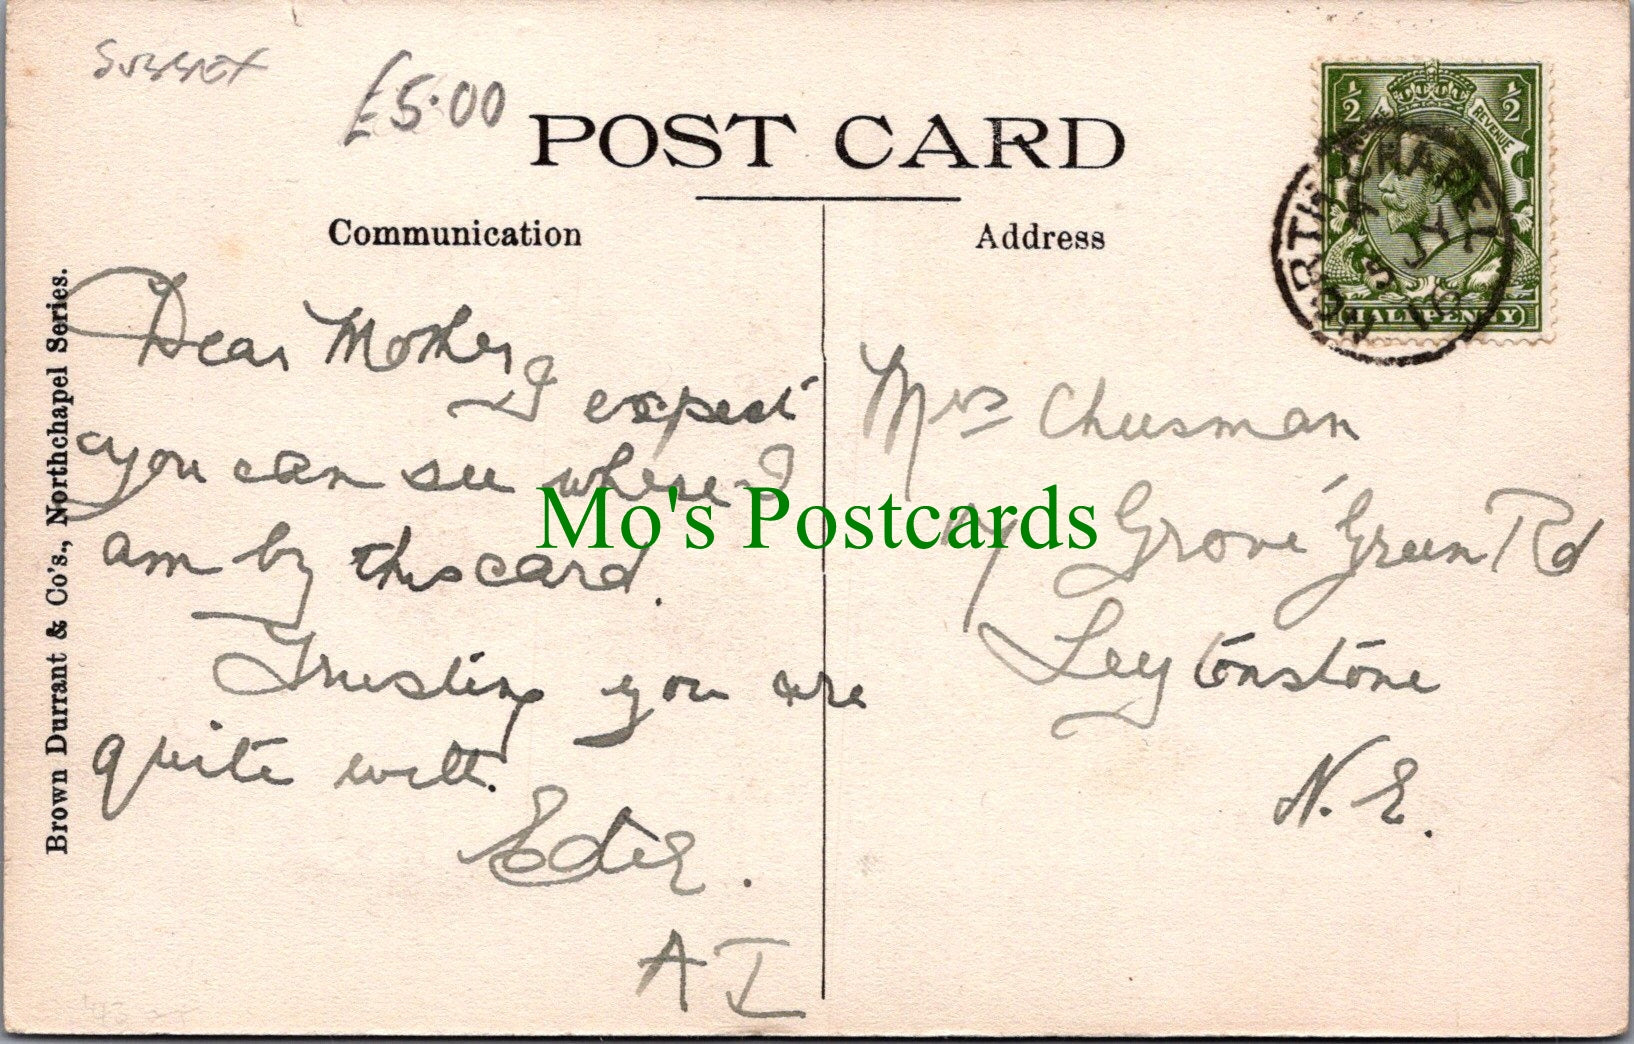 SUSSEX
£5.00
POST CARD
Communication
Address
Brown Durrant & Co's., Northchapel Series.
½ ½
REVENUE
HALFPENNY
NORTHCHAPEL
A
8 JY
16
Dear Mother,
I expect
you can see where I
am by this card.
Trusting you are
quite well.
Edie.
A I
Mrs Cheesman
Grove Green Rd
Leytonstone
N.E.
Mo's Postcards